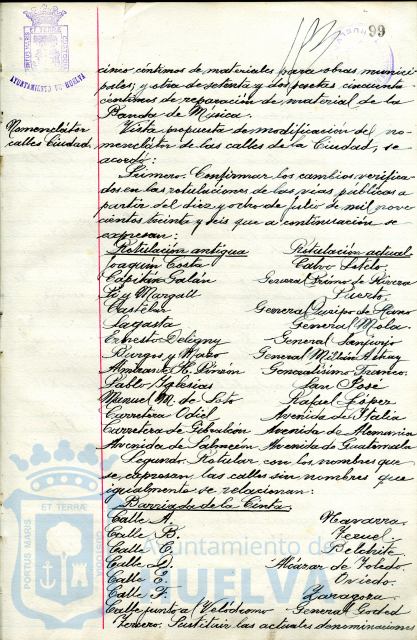 99
AYUNTAMIENTO DE HUELVA
cinco céntimos de materiales para obras munici-
pales; y otra de setenta y dos pesetas cincuenta
céntimos de reparación de material de la
Banda de Música.
Nomenclátor
calles Ciudad.
Vista propuesta de modificación del no-
menclátor de las calles de la Ciudad, se
acordó:
Primero. Confirmar los cambios verifica-
dos en las rotulaciones de las vías públicas a
partir del diez y ocho de julio de mil nove
cientos treinta y seis que a continuación se
expresan:
Rotulación antigua Rotulación actual
Joaquín Costa Calvo Sotelo
Capitán Galán General Primo de Rivera
Pi y Margall Puerto
Castelar General Queipo de Llano
Sagasta General Mola
Ernesto Deligny General Sanjurjo
Burgos y Mazo General Millán Astray
Almirante H. Pinzón Generalísimo Franco
Pablo Iglesias San José
Manuel M. de Soto Rafael López
Carretera Odiel Avenida de Italia
Carretera de Gibraleón Avenida de Alemania
Avenida de Salmerón Avenida de Guatemala
Segundo. Rotular con los nombres que
se expresan las calles sin nombres que
igualmente se relacionan:
Barriada de la Cinta
Calle A. Navarra
Calle B. Teruel
Calle C. Belchite
Calle D. Alcázar de Toledo
Calle E. Oviedo
Calle F. Zaragoza
Calle junto al Velódromo General Goded
Tercero. Sustituir las actuales denominaciones
PORTUS MARIS
ET TERRAE
Ayuntamiento de
HUELVA